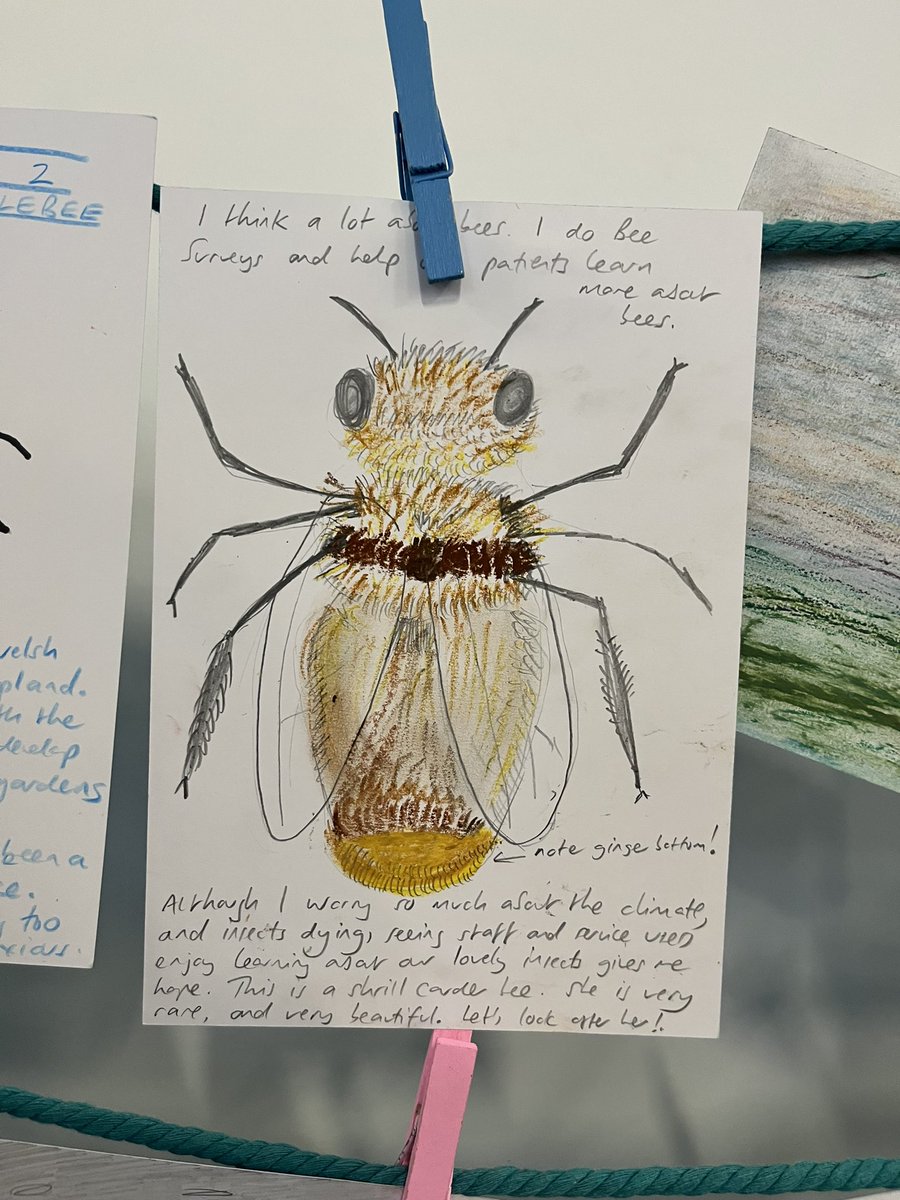 2
LEBEE
welsh
pland.
th the
develop
gardens
been a
se.
too
xious.
I think a lot bees. I do Bee
Surveys and help patients learn
more about
bees.
note ginge bottom!
Although I worry so much about the climate,
and insects dying, seeing staff and service users
enjoy learning about our lovely insects gives me
hope. This is a shrill carder bee. She is very
rare, and very beautiful. Let's look after her!